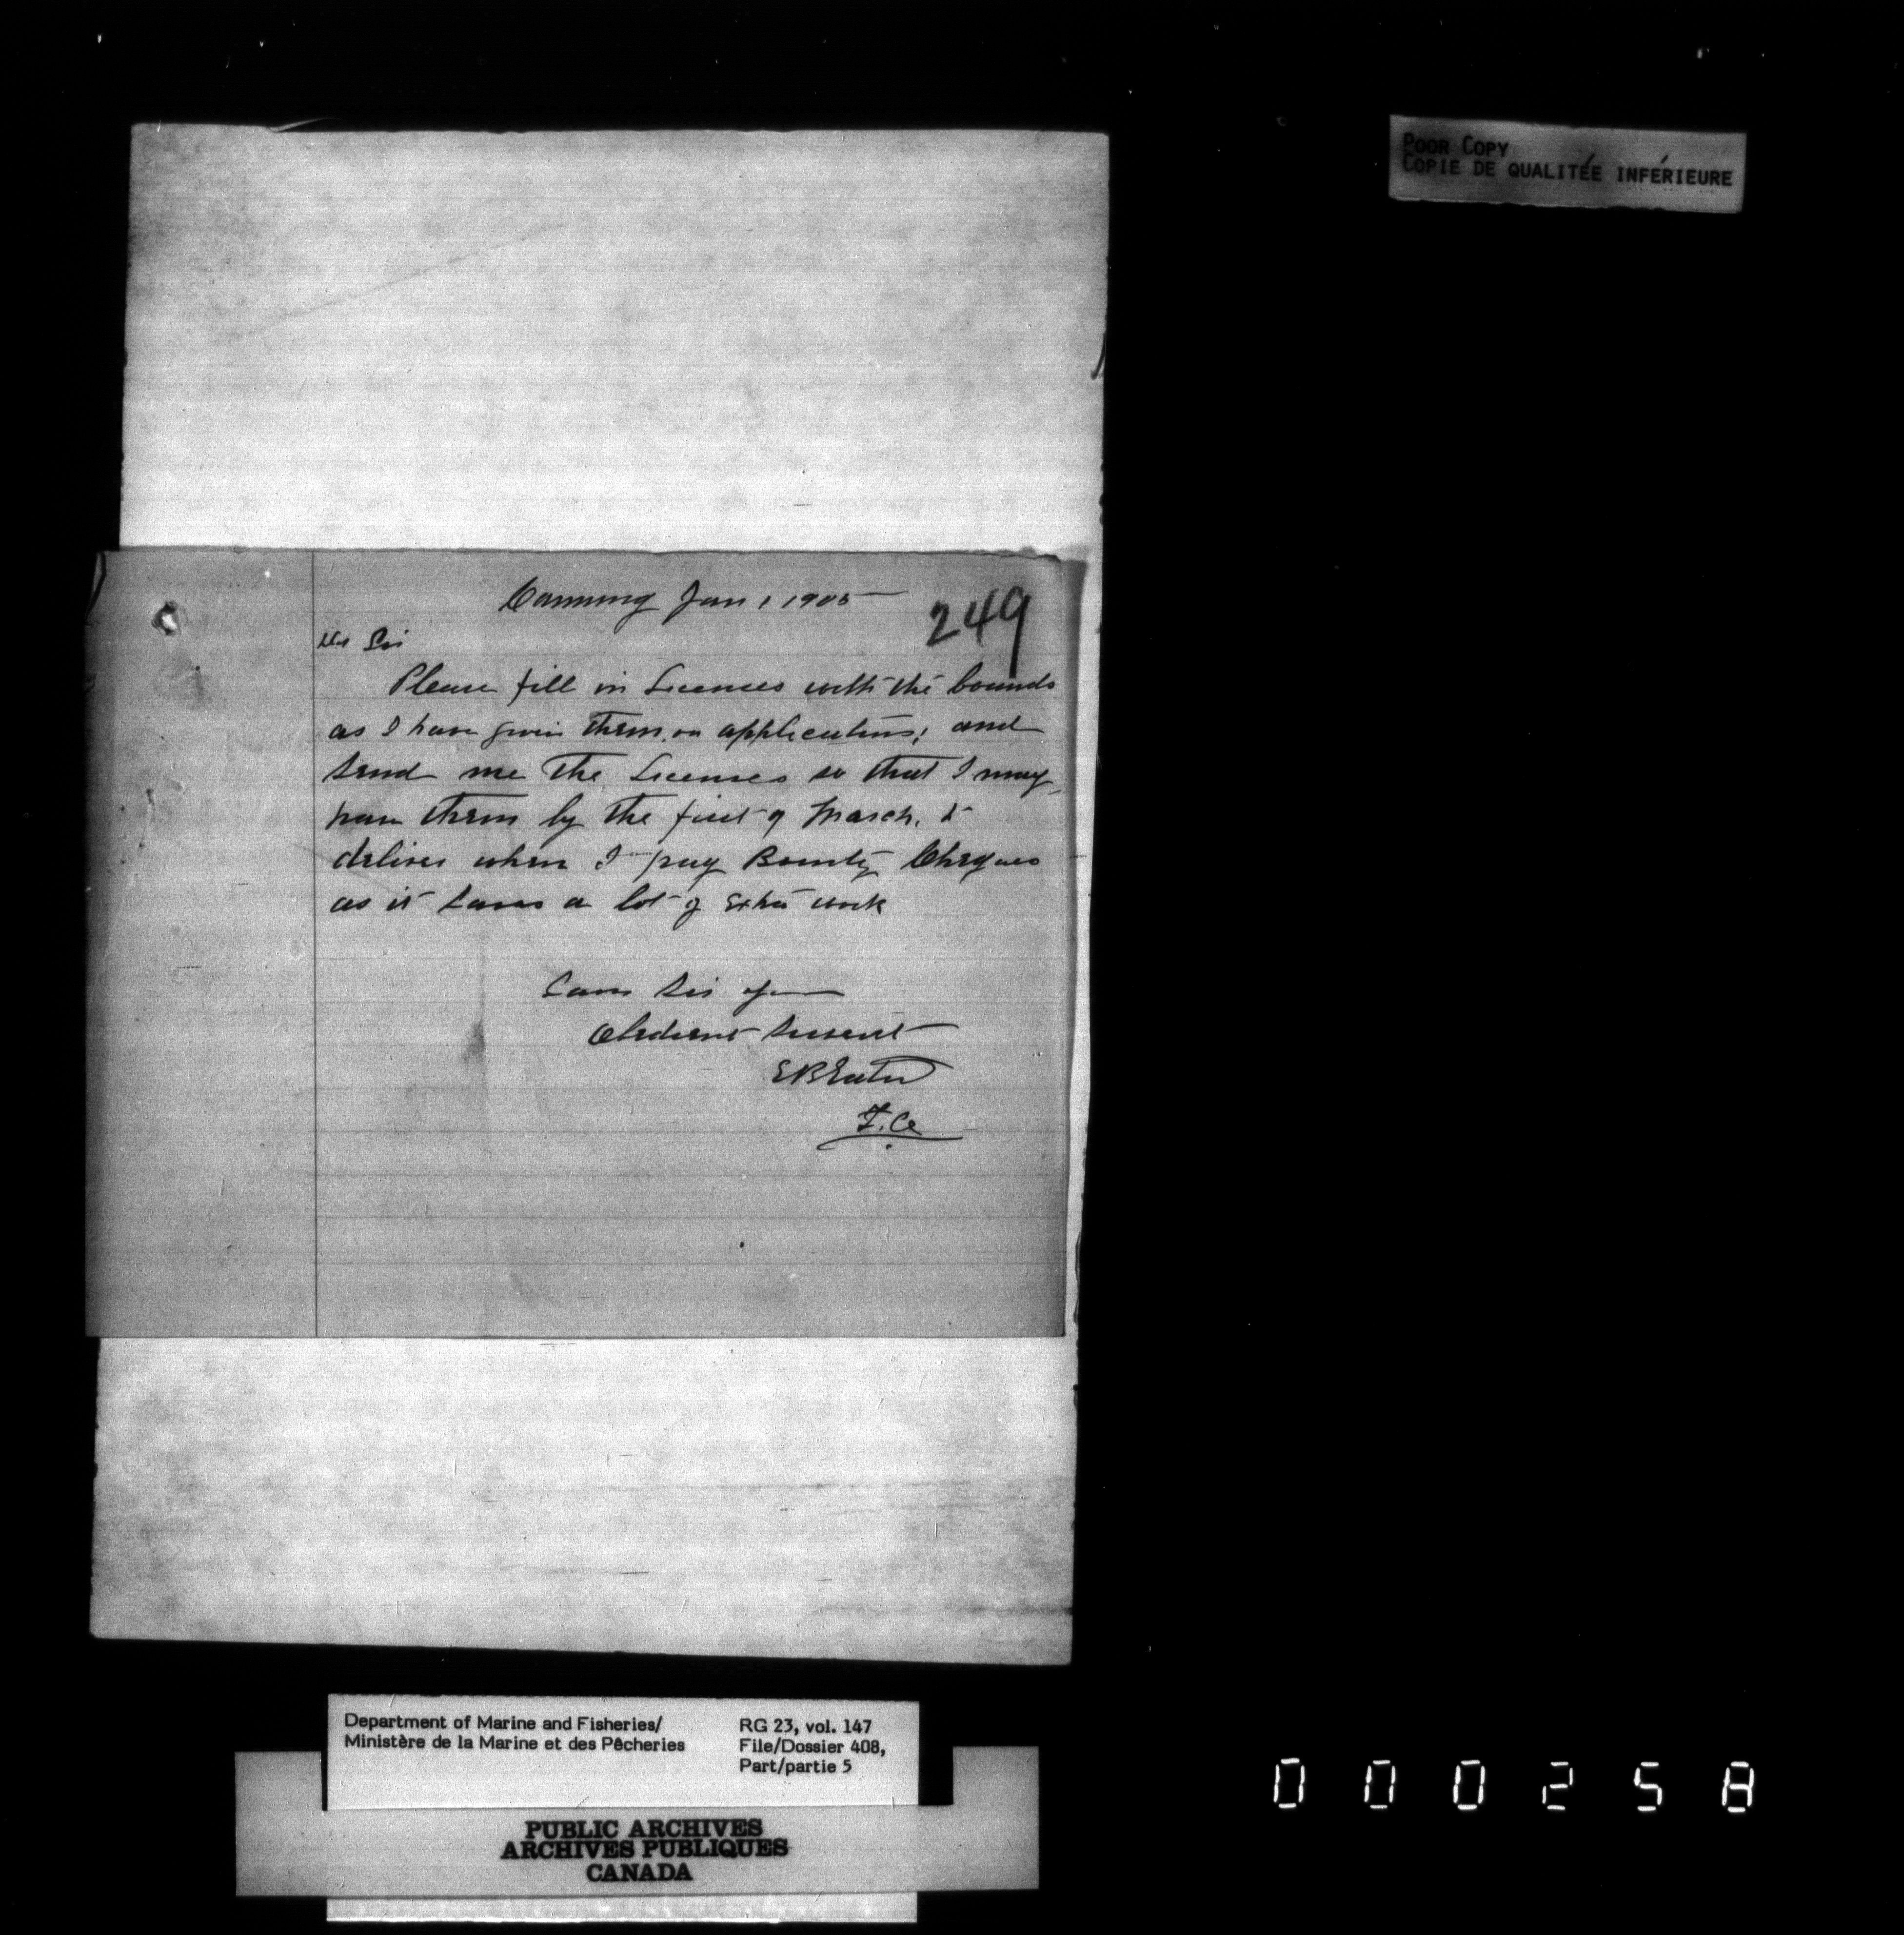 POOR COPY
COPIE DE QUALITÉE INFÉRIEURE
Canning Jan 1 1905
249
Dr Sir
Please fill in Licenses with the bounds
as I have given them on applications; and
send me the Licenses so that I may
have them by the first of March, to
deliver when I pay Bounty Cheques
as it saves a lot of extra work
I am Sir your
Obedient Servent
E B Eaton
F.O.
Department of Marine and Fisheries/
Ministère de la Marine et des Pêcheries
RG 23, vol. 147
File/Dossier 408,
Part/partie 5
PUBLIC ARCHIVES
ARCHIVES PUBLIQUES
CANADA
000258